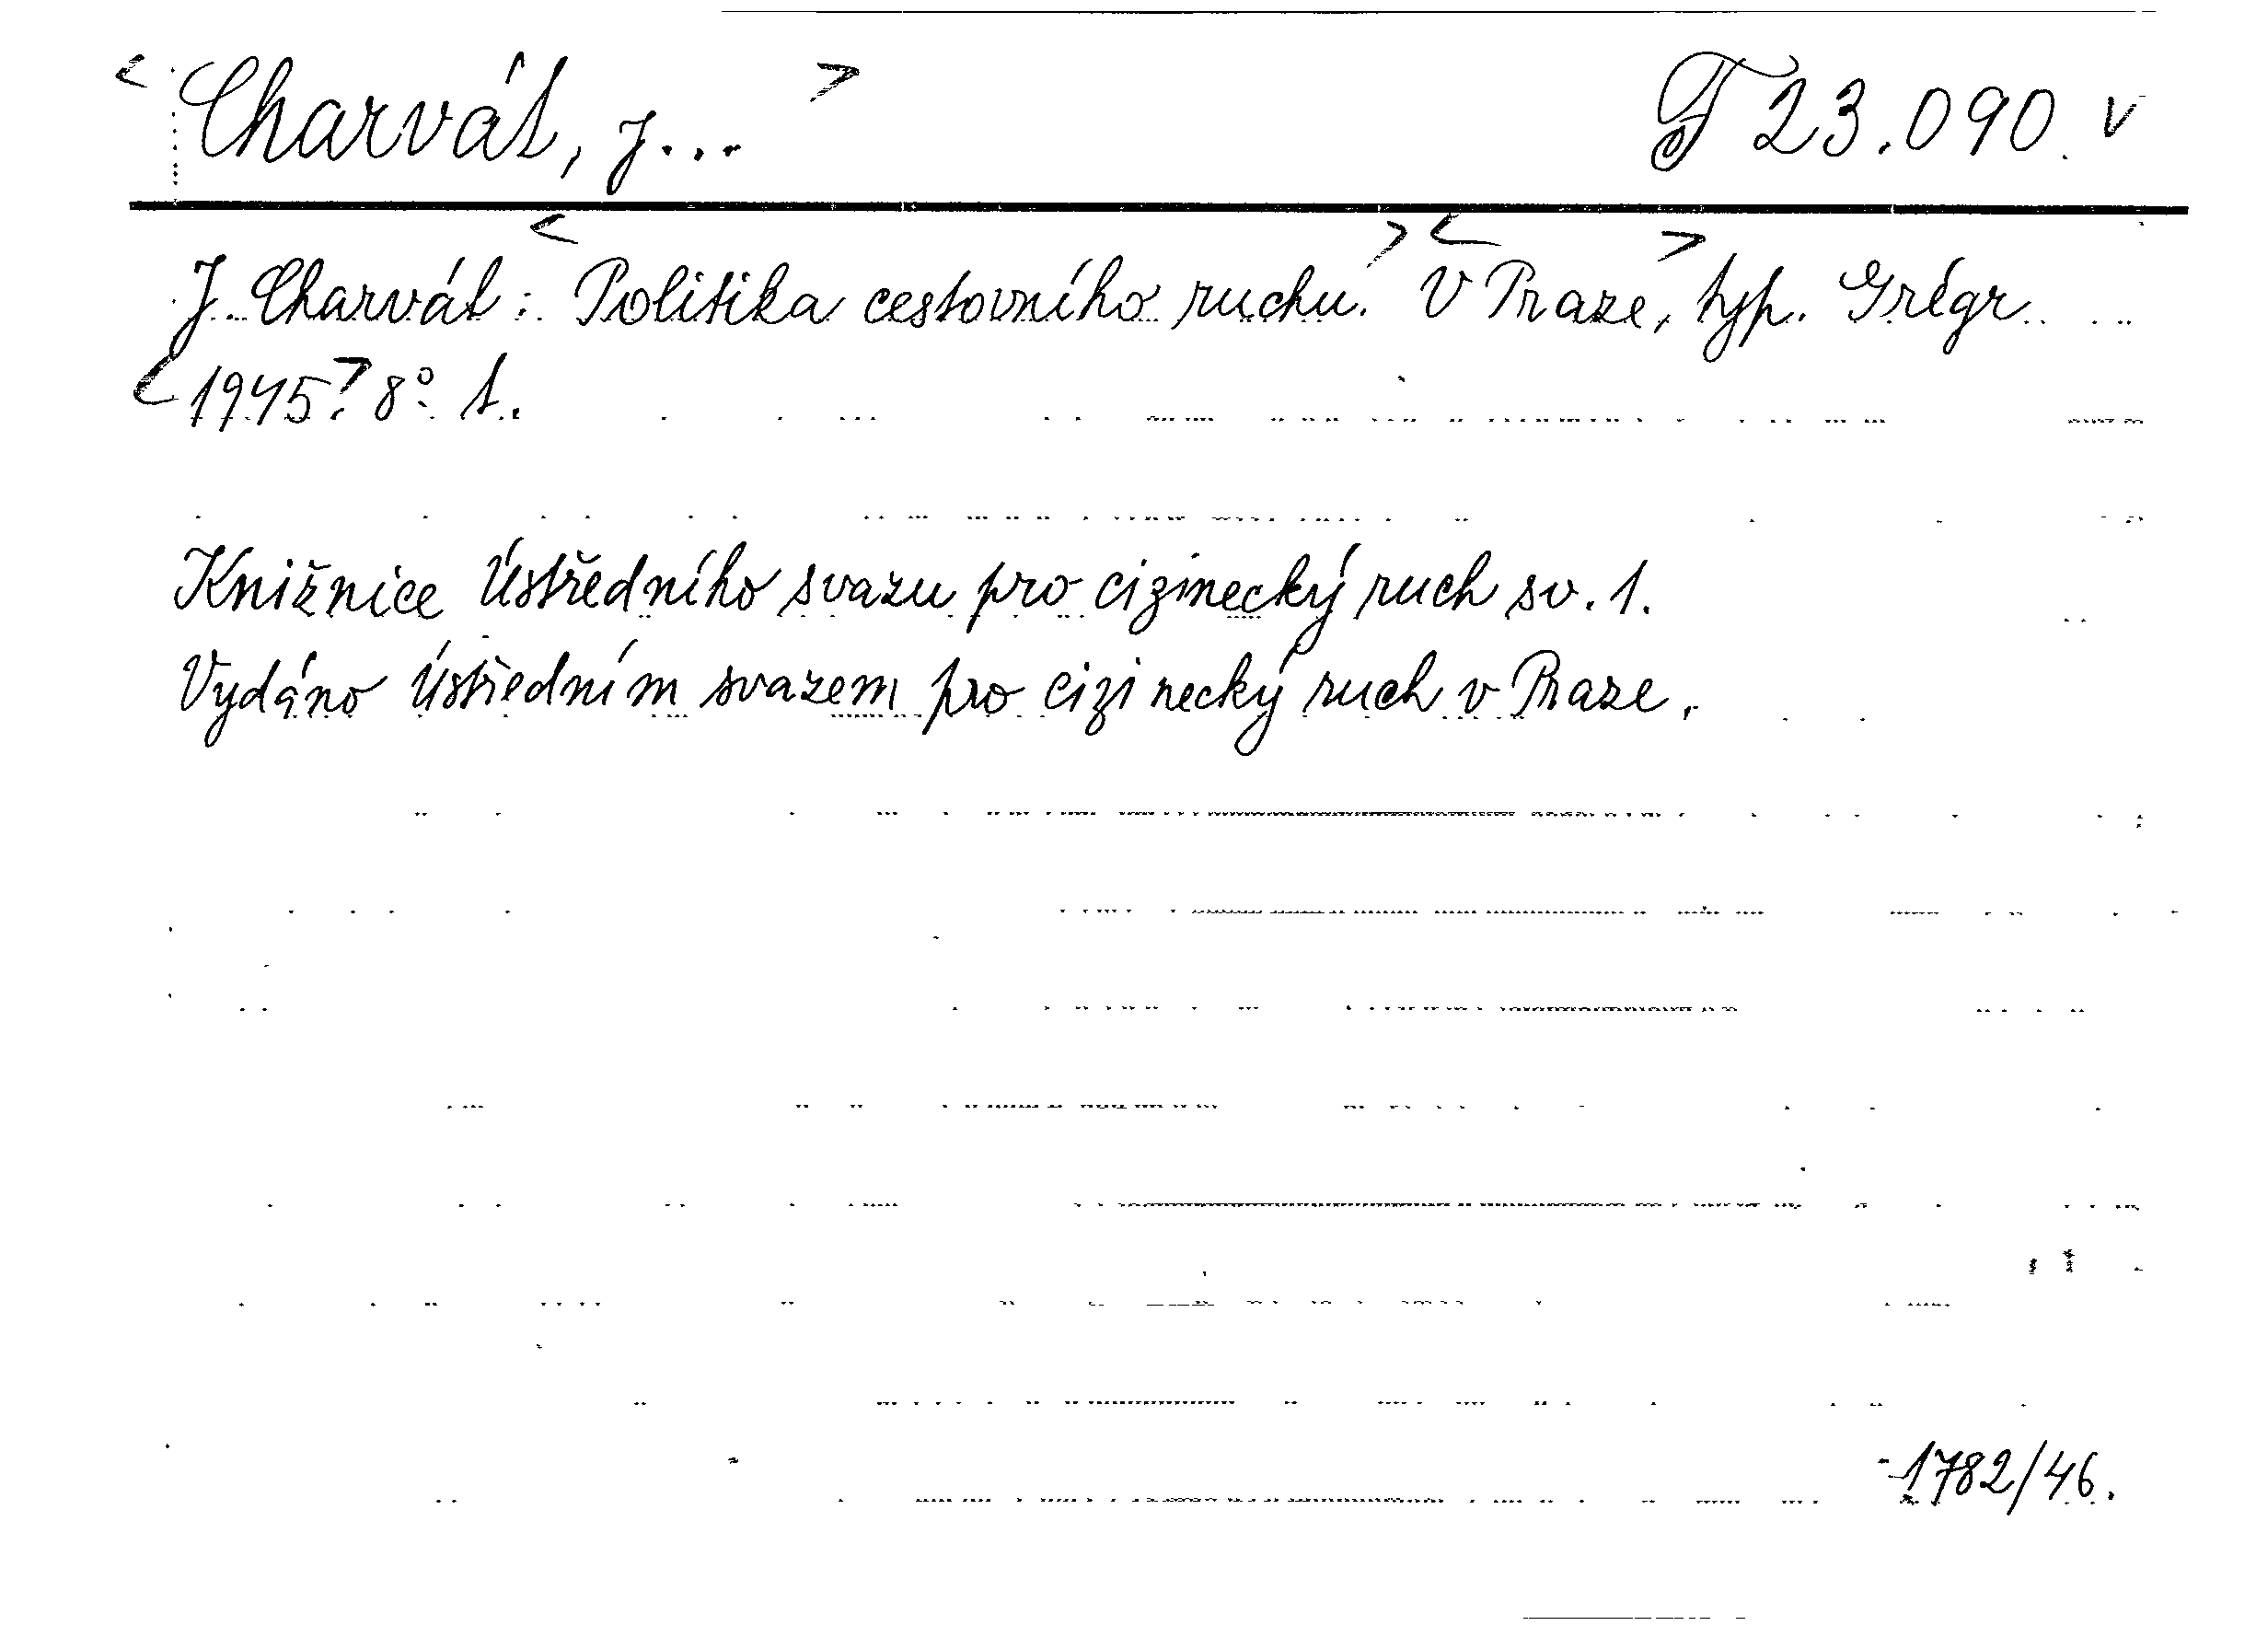 <Charvát, J...> F 23.090 v
J. Charvát: <Politika cestovního ruchu.> <V Praze,> typ. Grégr
<1945.> 8° 1.
Knižnice Ústředního svazu pro cizinecký ruch sv. 1.
Vydáno Ústředním svazem pro cizinecký ruch v Praze.
1782/46.